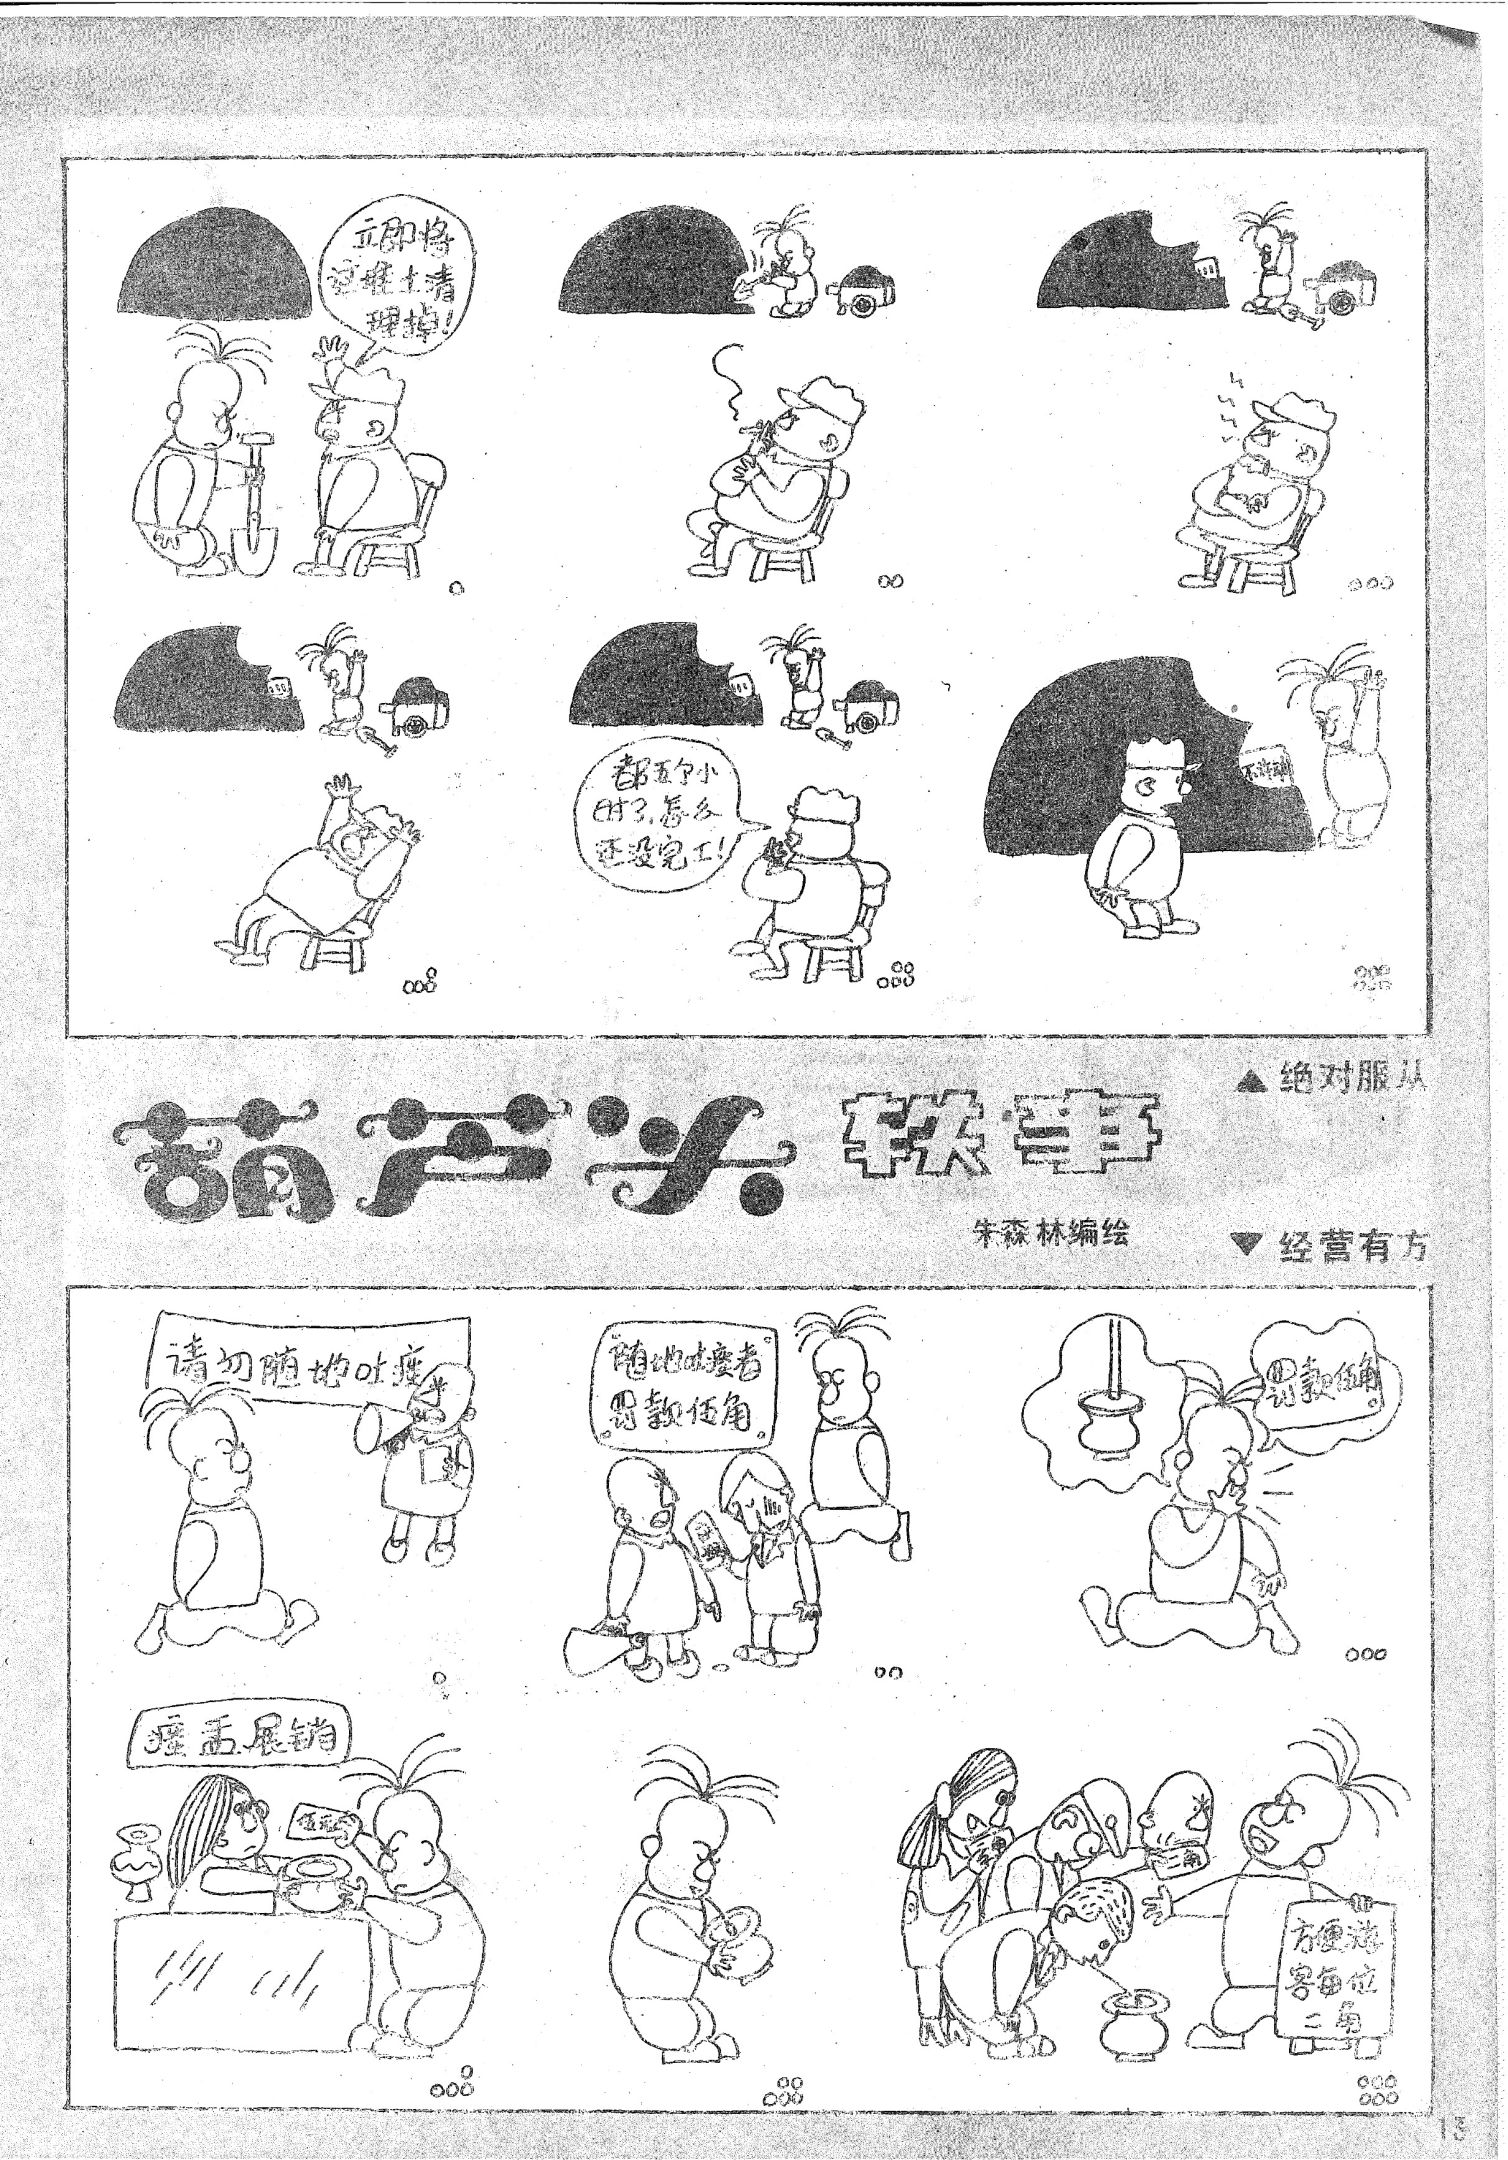 立即将
这堆土清
理掉!
都五个小
时了,怎么
还没完工!
不许动
▲绝对服从
葫芦头 轶事
朱森林编绘
▼经营有方
请勿随地吐痰
随地吐痰者
罚款伍角
罚款伍角
痰盂展销
伍元
二角
方便游
客每位
二角
13